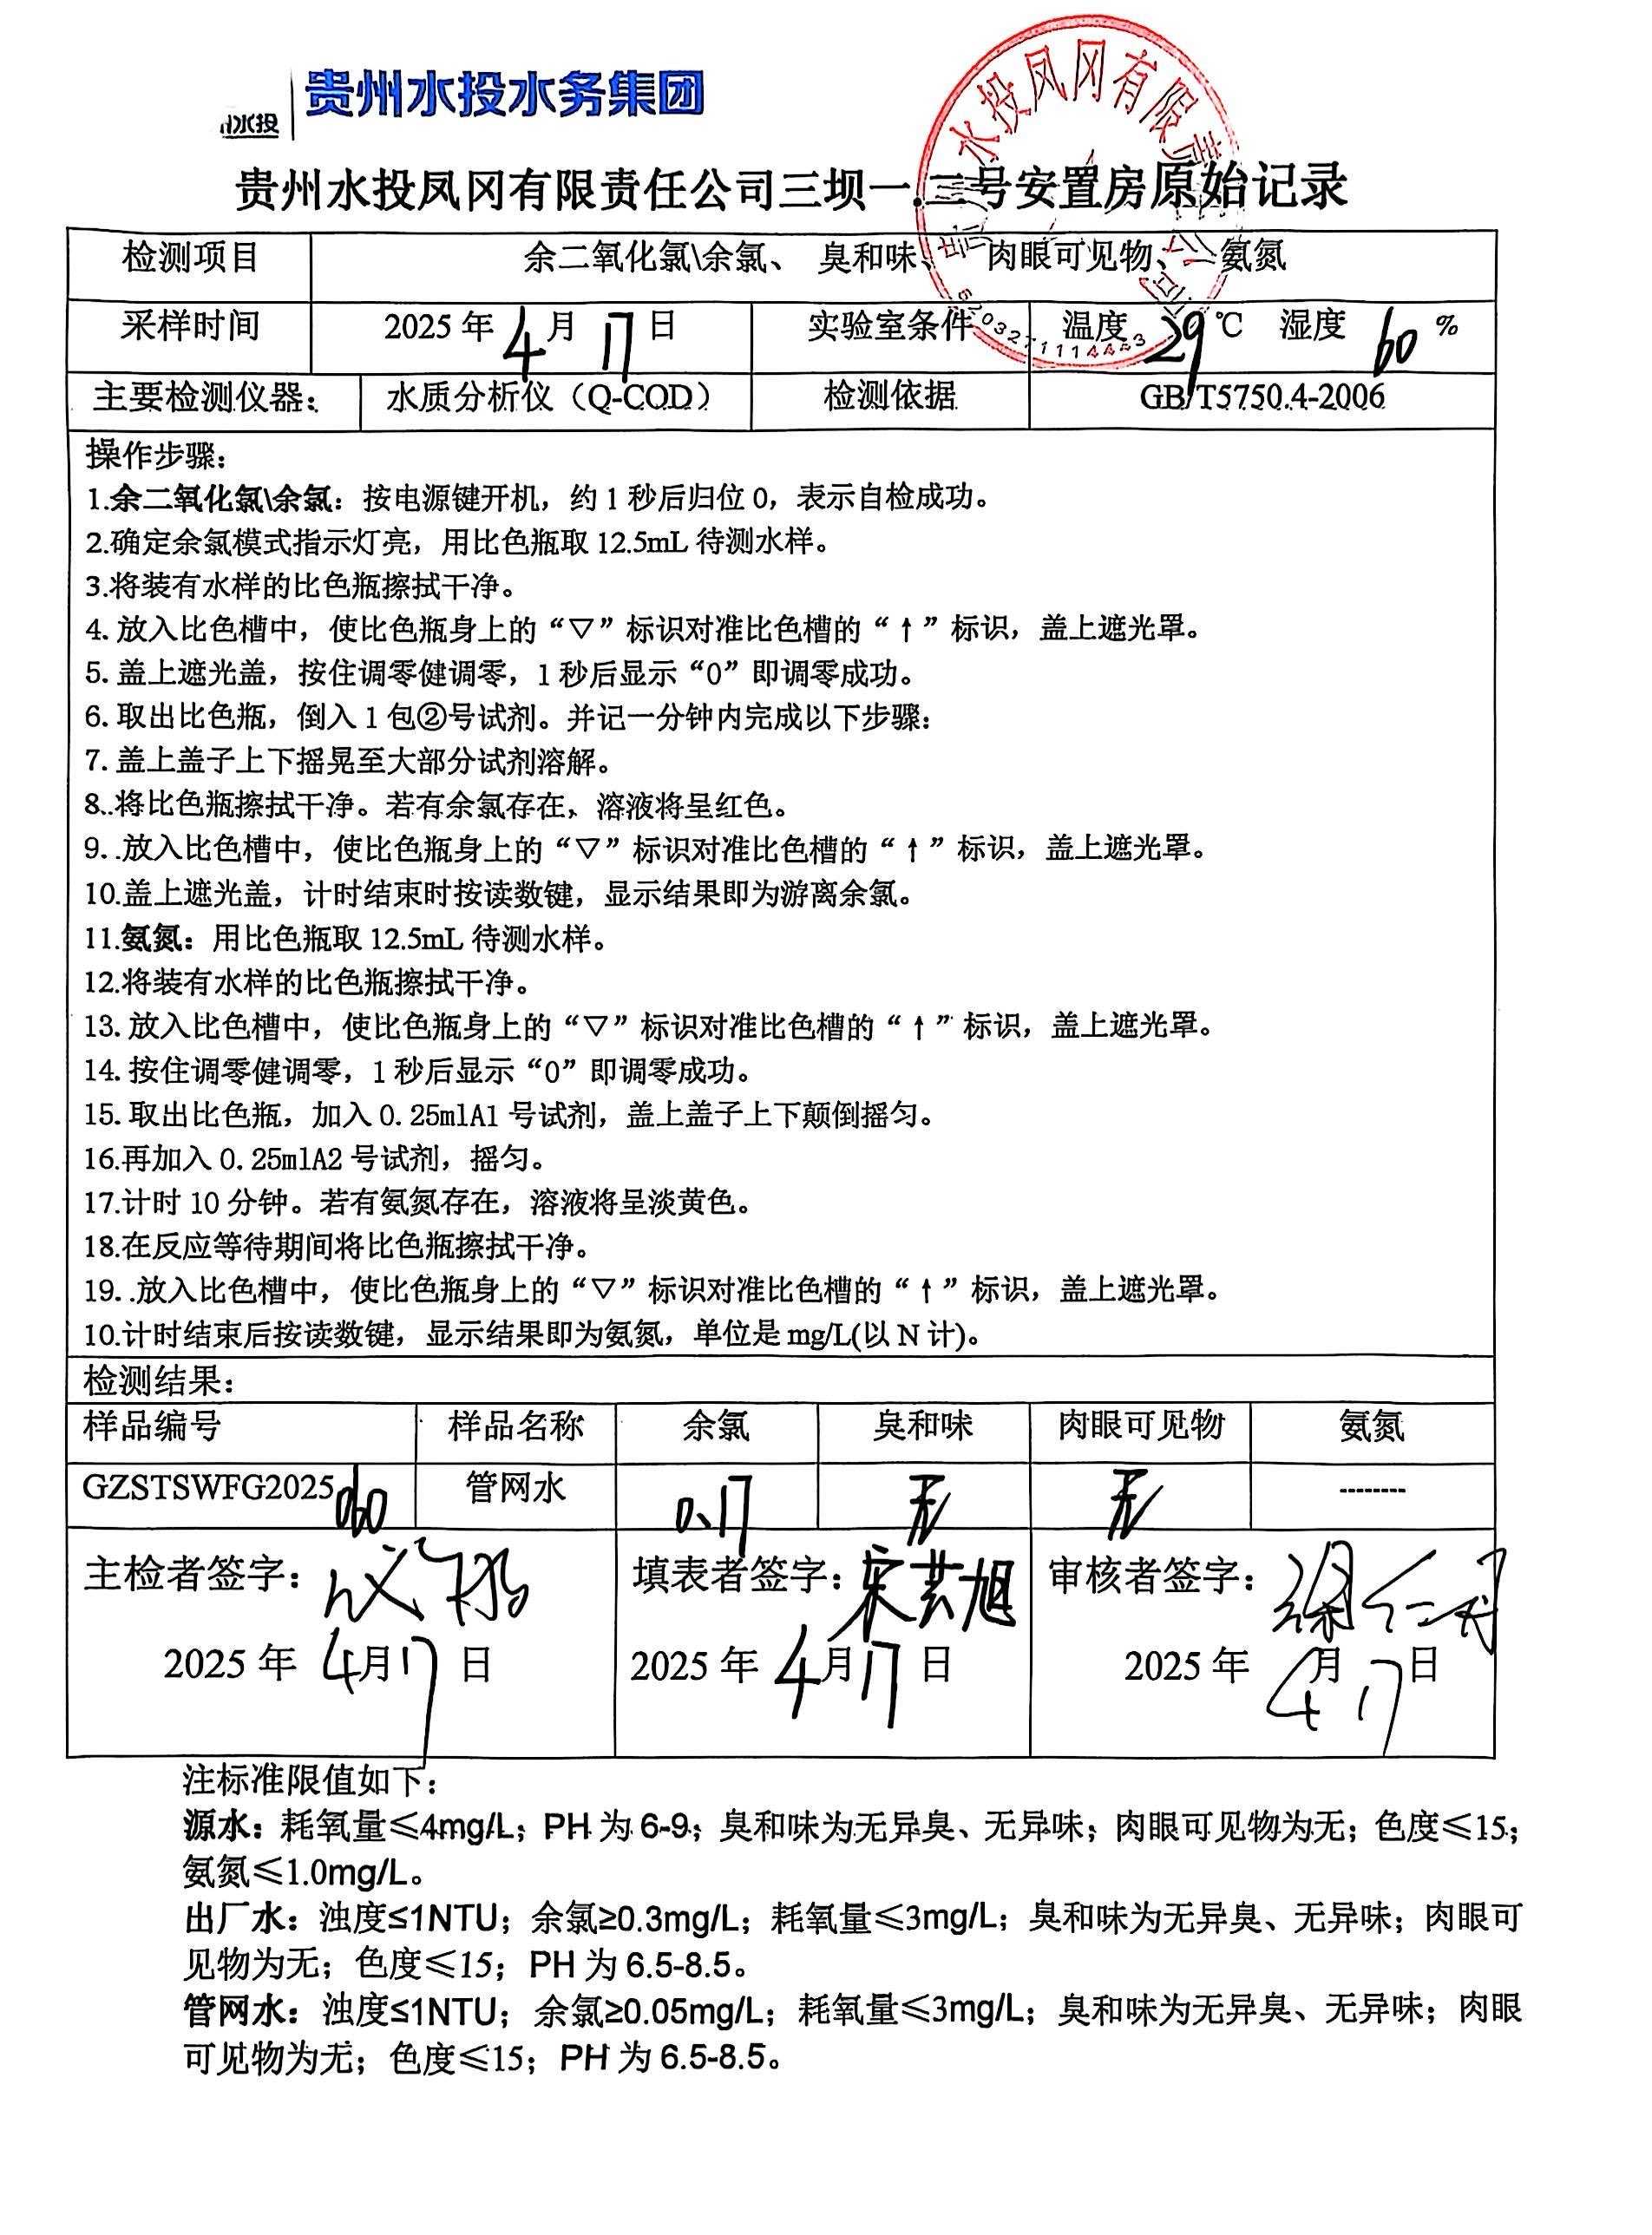 水投
贵州水投水务集团
贵州水投凤冈有限责任公司三坝一.二号安置房原始记录
检测项目 余二氧化氯\余氯、 臭和味、 肉眼可见物、 氨氮
采样时间 2025 年 4 月 17 日 实验室条件 温度 29 ℃ 湿度 60 %
主要检测仪器： 水质分析仪（Q-COD） 检测依据 GB/T5750.4-2006
操作步骤：
1.余二氧化氯\余氯：按电源键开机，约 1 秒后归位 0，表示自检成功。
2.确定余氯模式指示灯亮，用比色瓶取 12.5mL 待测水样。
3.将装有水样的比色瓶擦拭干净。
4. 放入比色槽中，使比色瓶身上的“▽”标识对准比色槽的“↑”标识，盖上遮光罩。
5. 盖上遮光盖，按住调零健调零，1 秒后显示“0”即调零成功。
6. 取出比色瓶，倒入 1 包②号试剂。并记一分钟内完成以下步骤：
7. 盖上盖子上下摇晃至大部分试剂溶解。
8..将比色瓶擦拭干净。若有余氯存在，溶液将呈红色。
9. .放入比色槽中，使比色瓶身上的“▽”标识对准比色槽的“↑”标识，盖上遮光罩。
10.盖上遮光盖，计时结束时按读数键，显示结果即为游离余氯。
11.氨氮：用比色瓶取 12.5mL 待测水样。
12.将装有水样的比色瓶擦拭干净。
13. 放入比色槽中，使比色瓶身上的“▽”标识对准比色槽的“↑”标识，盖上遮光罩。
14. 按住调零健调零，1 秒后显示“0”即调零成功。
15. 取出比色瓶，加入 0.25mlA1 号试剂，盖上盖子上下颠倒摇匀。
16.再加入 0.25mlA2 号试剂，摇匀。
17.计时 10 分钟。若有氨氮存在，溶液将呈淡黄色。
18.在反应等待期间将比色瓶擦拭干净。
19. .放入比色槽中，使比色瓶身上的“▽”标识对准比色槽的“↑”标识，盖上遮光罩。
10.计时结束后按读数键，显示结果即为氨氮，单位是 mg/L(以 N 计)。
检测结果：
样品编号 样品名称 余氯 臭和味 肉眼可见物 氨氮
GZSTSWFG2025060 管网水 0.17 无 无 --------
主检者签字： 填表者签字：宋芸旭 审核者签字：
2025 年 4 月 17 日 2025 年 4 月 17 日 2025 年 4 月 17 日
注标准限值如下：
源水：耗氧量≤4mg/L；PH 为 6-9；臭和味为无异臭、无异味；肉眼可见物为无；色度≤15；
氨氮≤1.0mg/L。
出厂水：浊度≤1NTU；余氯≥0.3mg/L；耗氧量≤3mg/L；臭和味为无异臭、无异味；肉眼可
见物为无；色度≤15；PH 为 6.5-8.5。
管网水：浊度≤1NTU；余氯≥0.05mg/L；耗氧量≤3mg/L；臭和味为无异臭、无异味；肉眼
可见物为无；色度≤15；PH 为 6.5-8.5。